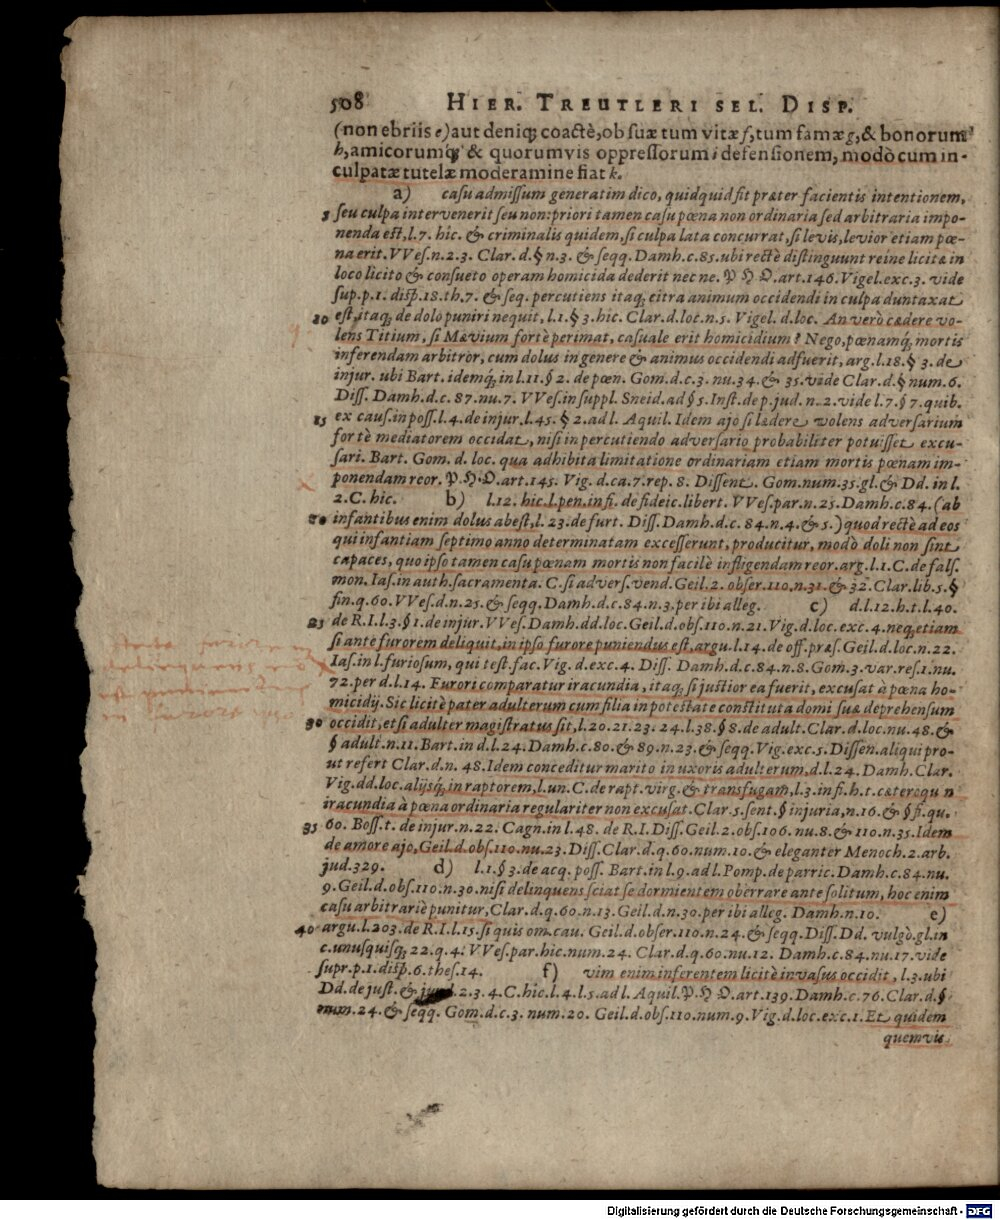 508 HIER. TREUTLERI SEL. DISP.
(non ebriis e) aut deniq; coactè, ob suæ tum vitæ f, tum famæ g, & bonorum
h, amicorumq́; & quorumvis oppressorum i defensionem, modò cum in-
culpatæ tutelæ moderamine fiat k.
a) casu admissum generatim dico, quidquid fit præter facientis intentionem,
5 seu culpa intervenerit seu non: priori tamen casu pœna non ordinaria sed arbitraria impo-
nenda est, l. 7. hic. & criminalis quidem, si culpa lata concurrat, si levis, levior etiam pœ-
na erit. VVes. n. 2. 3. Clar. d. § n. 3. & seqq. Damh. c. 85. ubi rectè distinguunt reine licita in
loco licito & consueto operam homicida dederit nec ne. P. H. O. art. 146. Vigel. exc. 3. vide
sup. p. 1. disp. 18. th. 7. & seq. percutiens itaq; citra animum occidendi in culpa duntaxat
10 est, itaq; de dolo puniri nequit, l. 1. § 3. hic. Clar. d. loc. n. 5. Vigel. d. loc. An verò cædere vo-
lens Titium, si Mævium fortè perimat, casuale erit homicidium? Nego, pœnamq́; mortis
inferendam arbitror, cum dolus in genere & animus occidendi adfuerit, arg. l. 18. § 3. de
injur. ubi Bart. idemq́; in l. 11. § 2. de pœn. Gom. d. c. 3. nu. 34. & 35. vide Clar. d. § num. 6.
Diss. Damh. d. c. 87. nu. 7. VVes. in suppl. Sneid. ad § 5. Inst. de p. jud. n. 2. vide l. 7. § 7. quib.
15 ex caus. in poss. l. 4. de injur. l. 45. § 2. ad l. Aquil. Idem ajo si lædere volens adversarium
fortè mediatorem occidat, nisi in percutiendo adversario probabiliter potuisset excu-
sari. Bart. Gom. d. loc. qua adhibita limitatione ordinariam etiam mortis pœnam im-
ponendam reor. P. H. O. art. 145. Vig. d. ca. 7. rep. 8. Dissent. Gom. num. 35. gl. & Dd. in l.
2. C. hic. b) l. 12. hic. l. pen. in fi. de fideic. libert. VVes. par. n. 25. Damh. c. 84. (ab
20 infantibus enim dolus abest, l. 23. de furt. Diss. Damh. d. c. 84. n. 4. & 5.) quod rectè ad eos
qui infantiam septimo anno determinatam excesserunt, producitur, modò doli non sint
capaces, quo ipso tamen casu pœnam mortis non facilè infligendam reor. arg. l. 1. C. de fals.
mon. Ias. in auth. sacramenta. C. si advers. vend. Geil. 2. obser. 110. n. 31. & 32. Clar. lib. 5. §
fin. q. 60. VVes. d. n. 25. & seqq. Damh. d. c. 84. n. 3. per ibi alleg. c) d. l. 12. h. t. l. 40.
25 de R. I. l. 3. § 1. de injur. VVes. Damh. dd. loc. Geil. d. obs. 110. n. 21. Vig. d. loc. exc. 4. neq; etiam
si ante furorem deliquit, in ipso furore puniendus est. argu. l. 14. de off. præs. Geil. d. loc. n. 22.
Ias. in l. furiosum, qui test. fac. Vig. d. exc. 4. Diss. Damh. d. c. 84. n. 8. Gom. 3. var. res. 1. nu.
72. per d. l. 14. Furori comparatur iracundia, itaq; si justior ea fuerit, excusat à pœna ho-
micidij. Sic licitè pater adulterum cum filia in potestate constituta domi suæ deprehensum
30 occidit, etsi adulter magistratus sit, l. 20. 21. 23. 24. l. 38. § 8. de adult. Clar. d. loc. nu. 48. &
§ adult. n. 11. Bart. in d. l. 24. Damh. c. 80. & 89. n. 23. & seqq. Vig. exc. 5. Dissen. aliqui pro-
ut refert Clar. d. n. 48. Idem conceditur marito in uxoris adulterum, d. l. 24. Damh. Clar.
Vig. dd. loc. alijsq́; in raptorem, l. un. C. de rapt. virg. & transfugam, l. 3. in fi. h. t. cæteroqu n
iracundia à pœna ordinaria regulariter non excusat. Clar. 5. sent. § injuria, n. 16. & § fi. qu.
35 60. Boss. t. de injur. n. 22. Cagn. in l. 48. de R. I. Diss. Geil. 2. obs. 106. nu. 8. & 110. n. 35. Idem
de amore ajo, Geil. d. obs. 110. nu. 23. Diss. Clar. d. q. 60. num. 10. & eleganter Menoch. 2. arb.
jud. 329. d) l. 1. § 3. de acq. poss. Bart. in l. 9. ad l. Pomp. de parric. Damh. c. 84. nu.
9. Geil. d. obs. 110. n. 30. nisi delinquens sciat se dormientem oberrare ante solitum, hoc enim
casu arbitrariè punitur, Clar. d. q. 60. n. 13. Geil. d. n. 30. per ibi alleg. Damh. n. 10. e)
40 argu. l. 203. de R. I. l. 15. si quis om. cau. Geil. d. obser. 110. n. 24. & seqq. Diss. Dd. vulgò. gl. in
c. unusquisq; 22. q. 4. VVes. par. hic. num. 24. Clar. d. q. 60. nu. 12. Damh. c. 84. nu. 17. vide
supr. p. 1. disp. 6. thes. 14. f) vim enim inferentem licitè invasus occidit, l. 3. ubi
Dd. de just. & jur. l. 2. 3. 4. C. hic. l. 4. l. 5. ad l. Aquil. P. H. O. art. 139. Damh. c. 76. Clar. d. §
num. 24. & seqq. Gom. d. c. 3. num. 20. Geil. d. obs. 110. num. 9. Vig. d. loc. exc. 1. Et quidem
quemvis
Digitalisierung gefördert durch die Deutsche Forschungsgemeinschaft - DFG